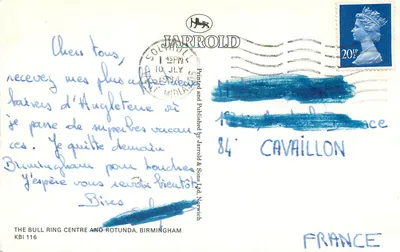 JARROLD
SOLIHULL
12
10 JLY
MIDLANDS
20½P
Chers tous,
recevez mes plus
baisers d'Angleterre où
je passe de superbes vacan-
ces. Je quitte demain
Birmingham pour Londres
J'espère vous revoir bientôt
Bises
Printed and Published by Jarrold & Sons Ltd, Norwich
84 CAVAILLON
FRANCE
THE BULL RING CENTRE AND ROTUNDA, BIRMINGHAM
KBI 116